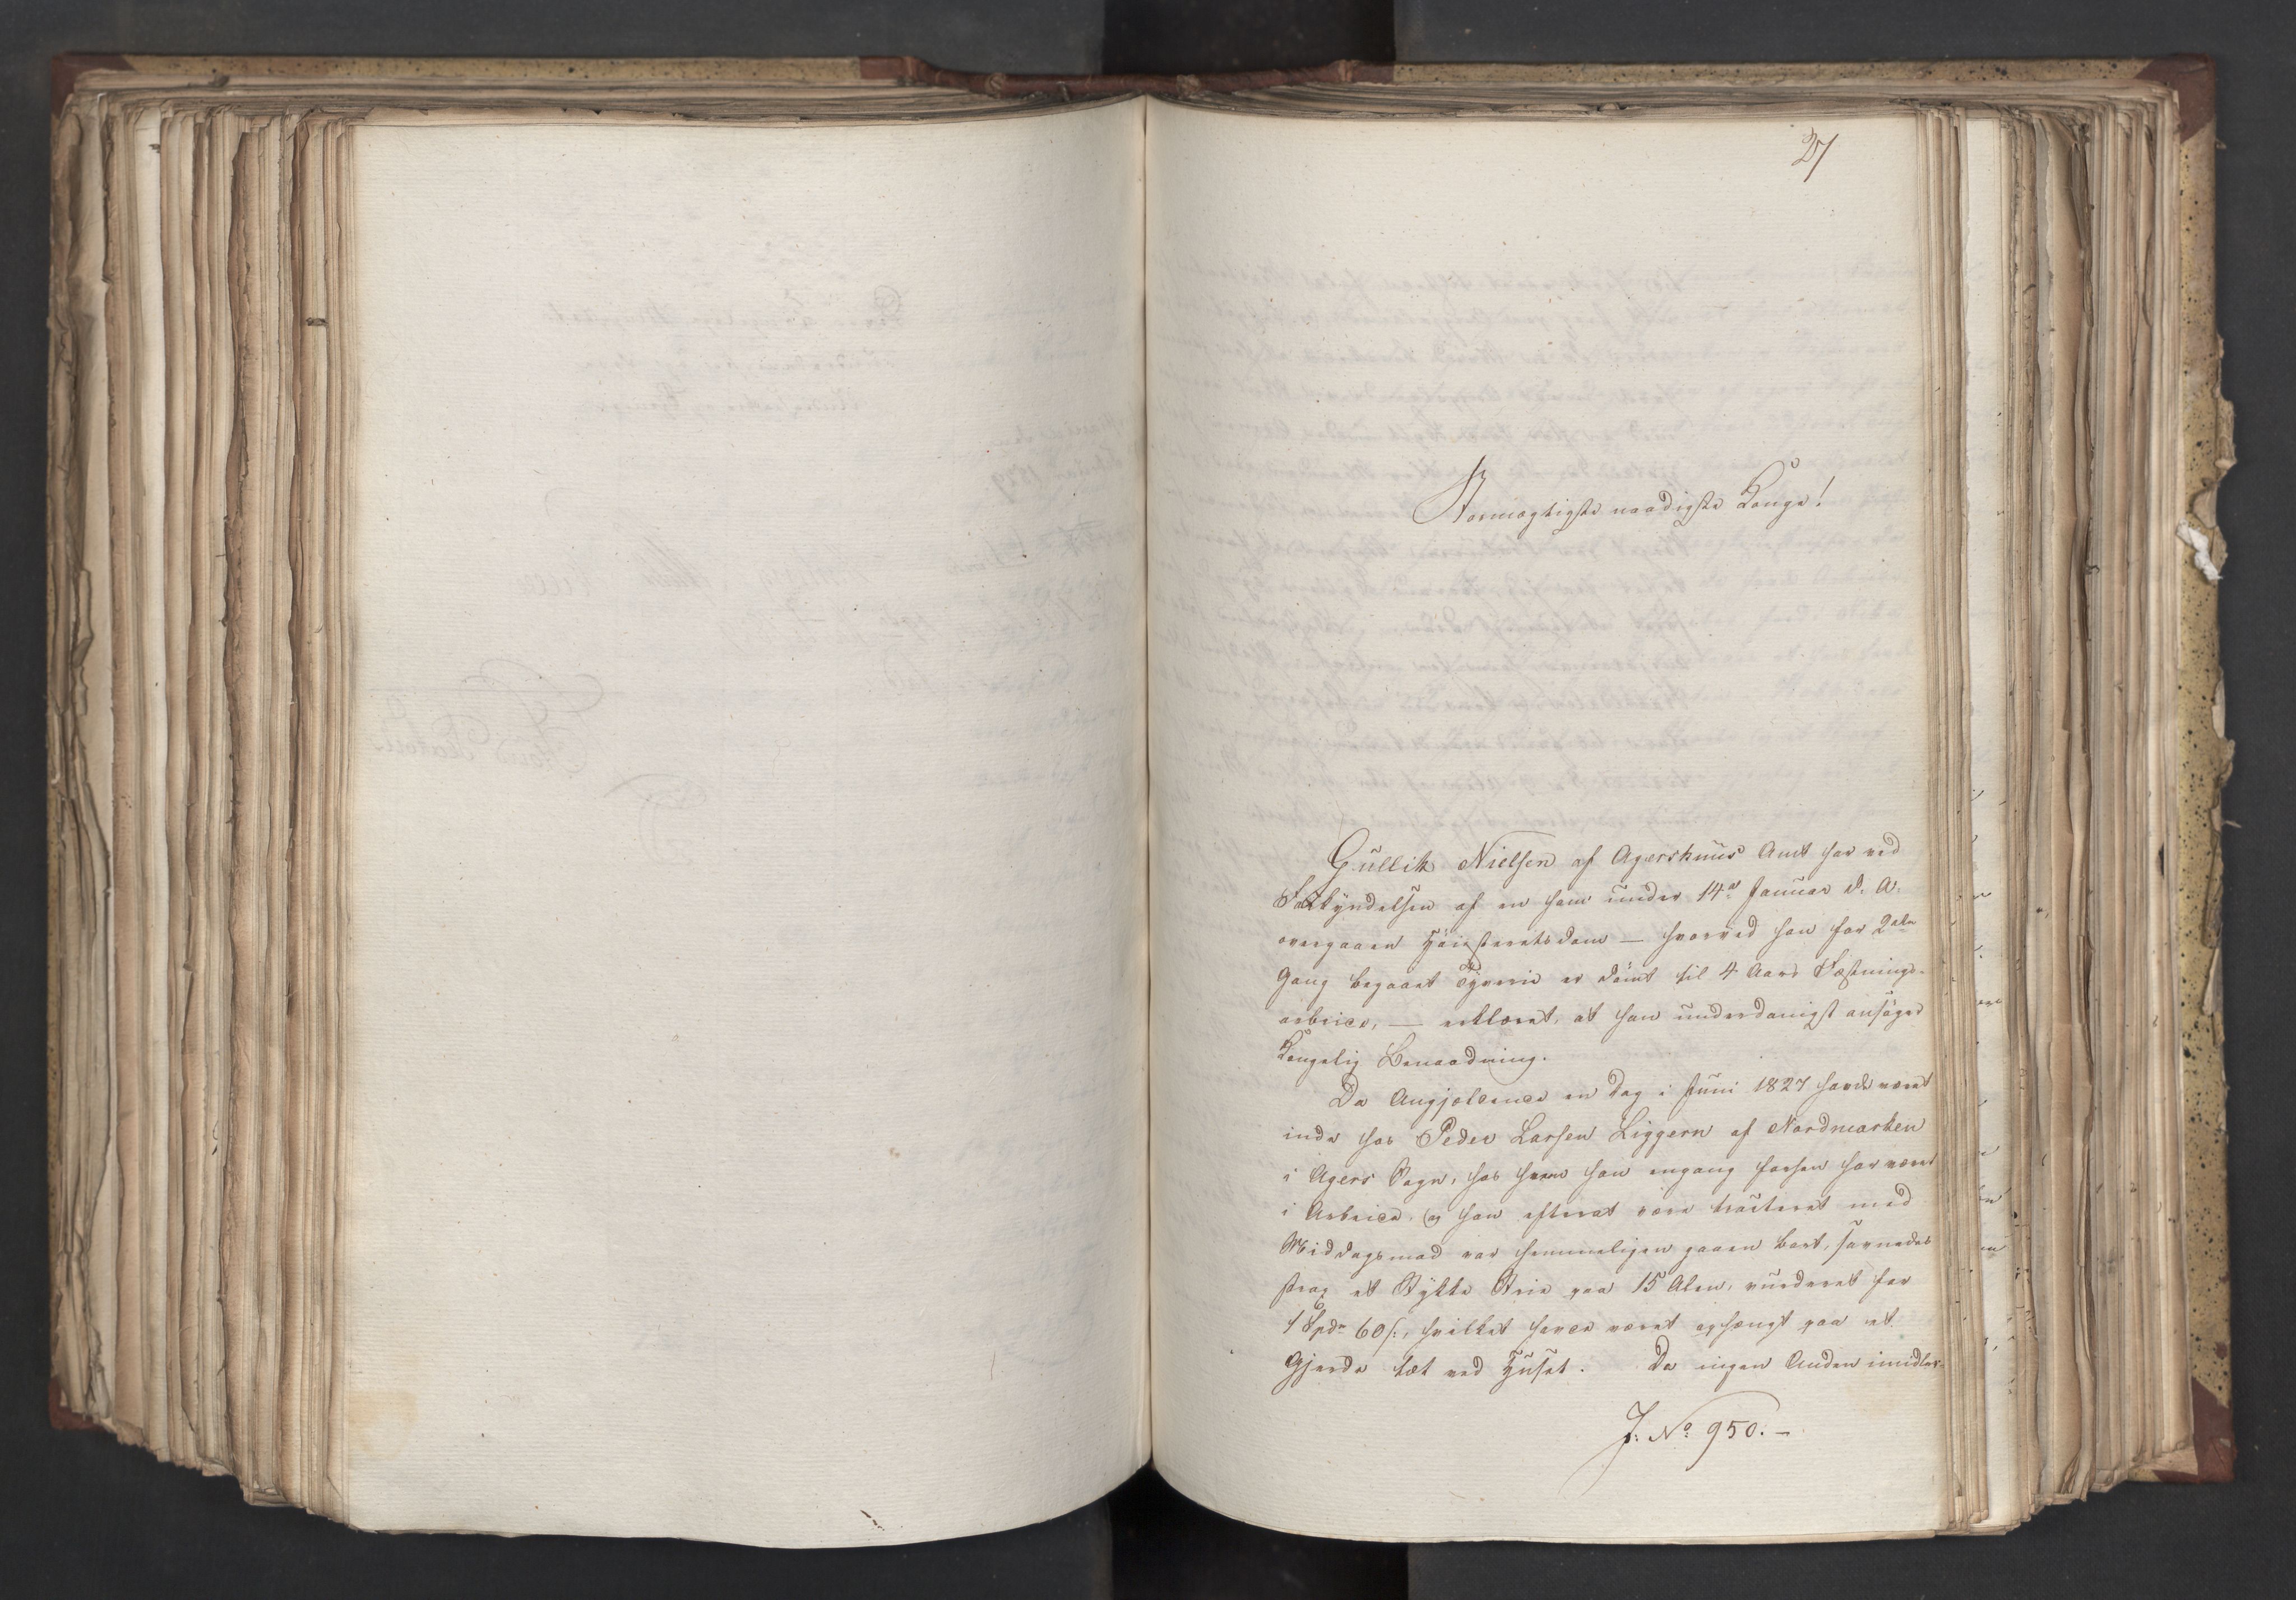 27
Stormægtigste naadigste Konge!
Gullik Nielsen af Agershuus Amt har ved
Forkyndelsen af en ham under 14de Januar d. A.
overgaaen Høiesteretsdom — hvorved han for 2den
Gang begaaet Tyverie er dømt til 4 Aars Fæstnings-
arbeide, — erklæret, at han underdanigst ansøger
Kongelig Benaadning.
Da Angjældende en Dag i Juni 1827 havde været
inde hos Peder Larsen Liggern af Nordmarken
i Agers Sogn, hos hvem han engang forhen har været
i Arbeide, og han efterat være tracteret med
Middagsmad var hemmeligen gaaen bort, savnedes
strax et Stykke Strie paa 15 Alen, vurderet for
1 Spdr 60 s:, hvilket havde været ophængt paa et
Gjerde tæt ved Huset. Da ingen Anden imidler-
J: No 950. –